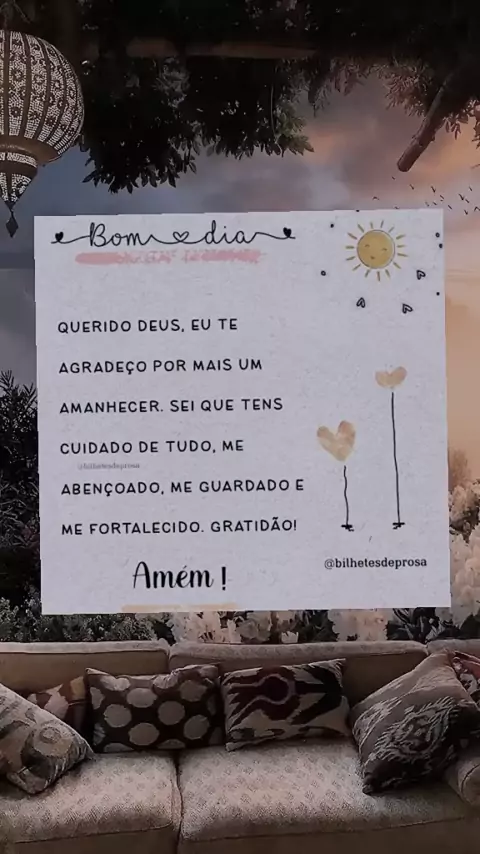 Bom dia
QUERIDO DEUS, EU TE
AGRADEÇO POR MAIS UM
AMANHECER. SEI QUE TENS
CUIDADO DE TUDO, ME
@bilhetesdeprosa
ABENÇOADO, ME GUARDADO E
ME FORTALECIDO. GRATIDÃO!
@bilhetesdeprosa
Amém !